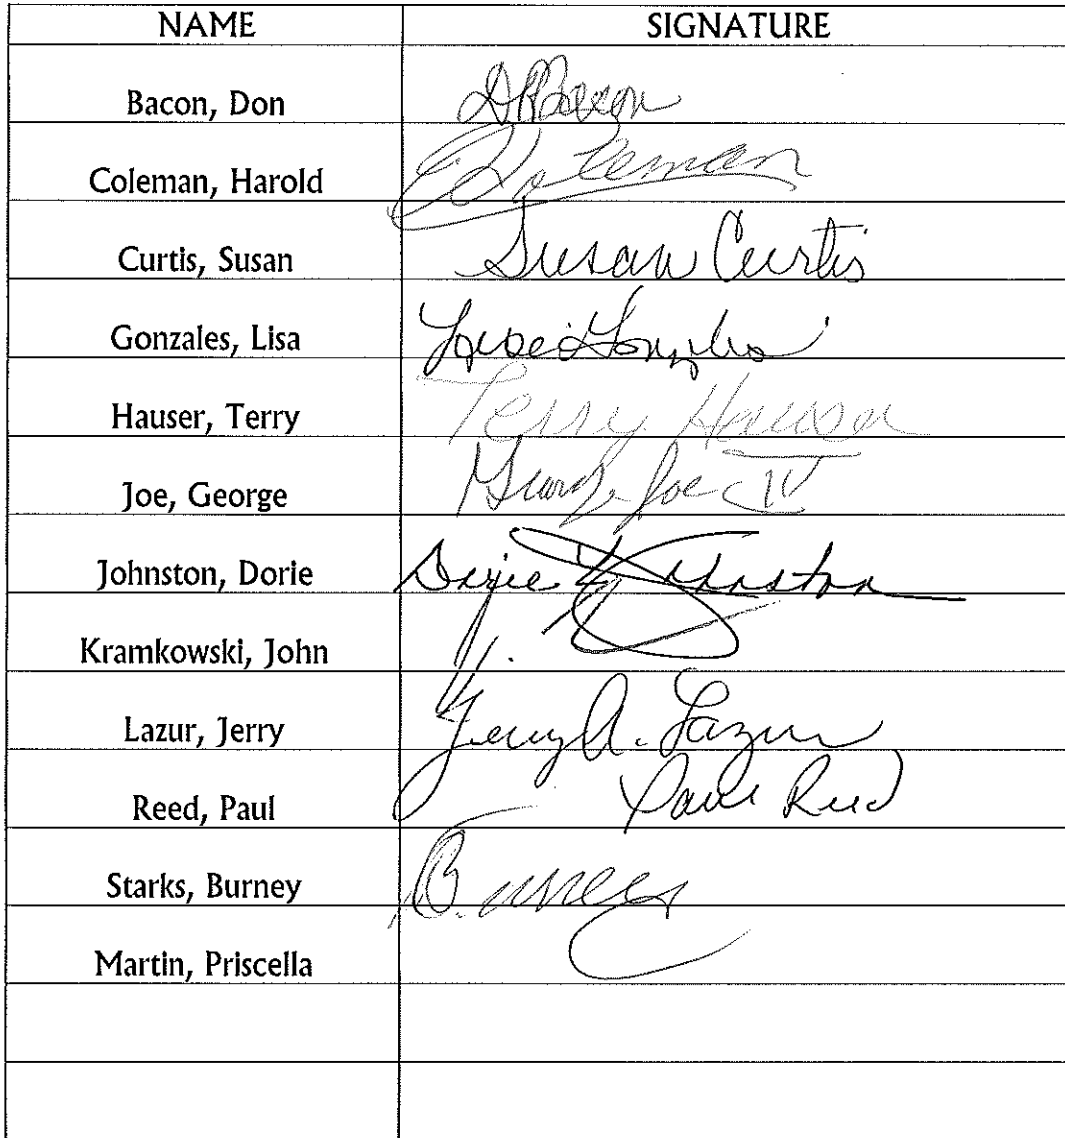 NAME SIGNATURE
Bacon, Don DRBacon
Coleman, Harold Coleman
Curtis, Susan Susan Curtis
Gonzales, Lisa Lisa Gonzales
Hauser, Terry Terry Hauser
Joe, George George Joe IV
Johnston, Dorie Johnston
Kramkowski, John
Lazur, Jerry Jerry A. Lazur
Reed, Paul Paul Reed
Starks, Burney Burney
Martin, Priscella